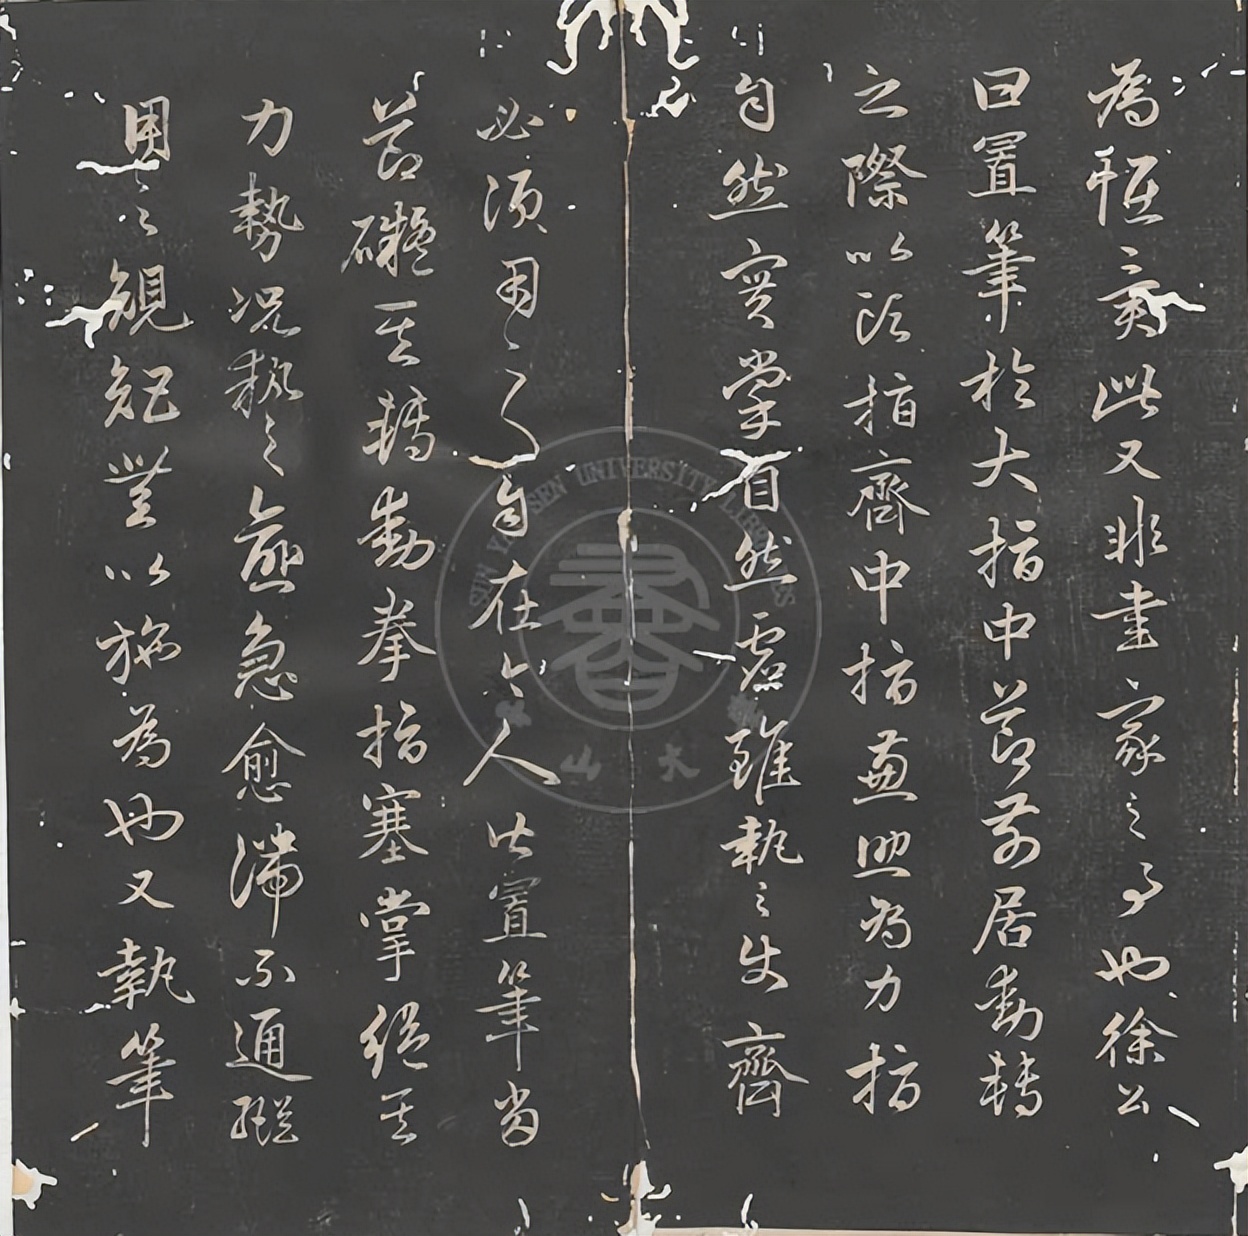 為怪異此又非書家之事也徐公
曰置筆於大指中節前居動轉
之際以頭指齊中指兼助為力指
自然實掌自然虛雖執之使齊
必須用之乃自在今人皆置筆當
節礙其轉動拳指塞掌絕其
力勢況執之愈急愈滯不通縱
用之規矩無以施為也又執筆
SUN YAT-SEN UNIVERSITY LIBRARIES